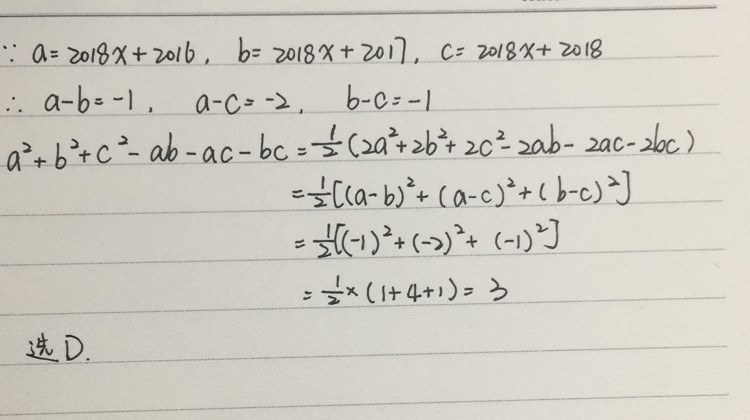 ∵ a=2018x+2016, b=2018x+2017, c=2018x+2018
∴ a-b=-1, a-c=-2, b-c=-1
a²+b²+c²-ab-ac-bc=½(2a²+2b²+2c²-2ab-2ac-2bc)
=½[(a-b)²+(a-c)²+(b-c)²]
=½[(-1)²+(-2)²+(-1)²]
=½×(1+4+1)=3
选D.